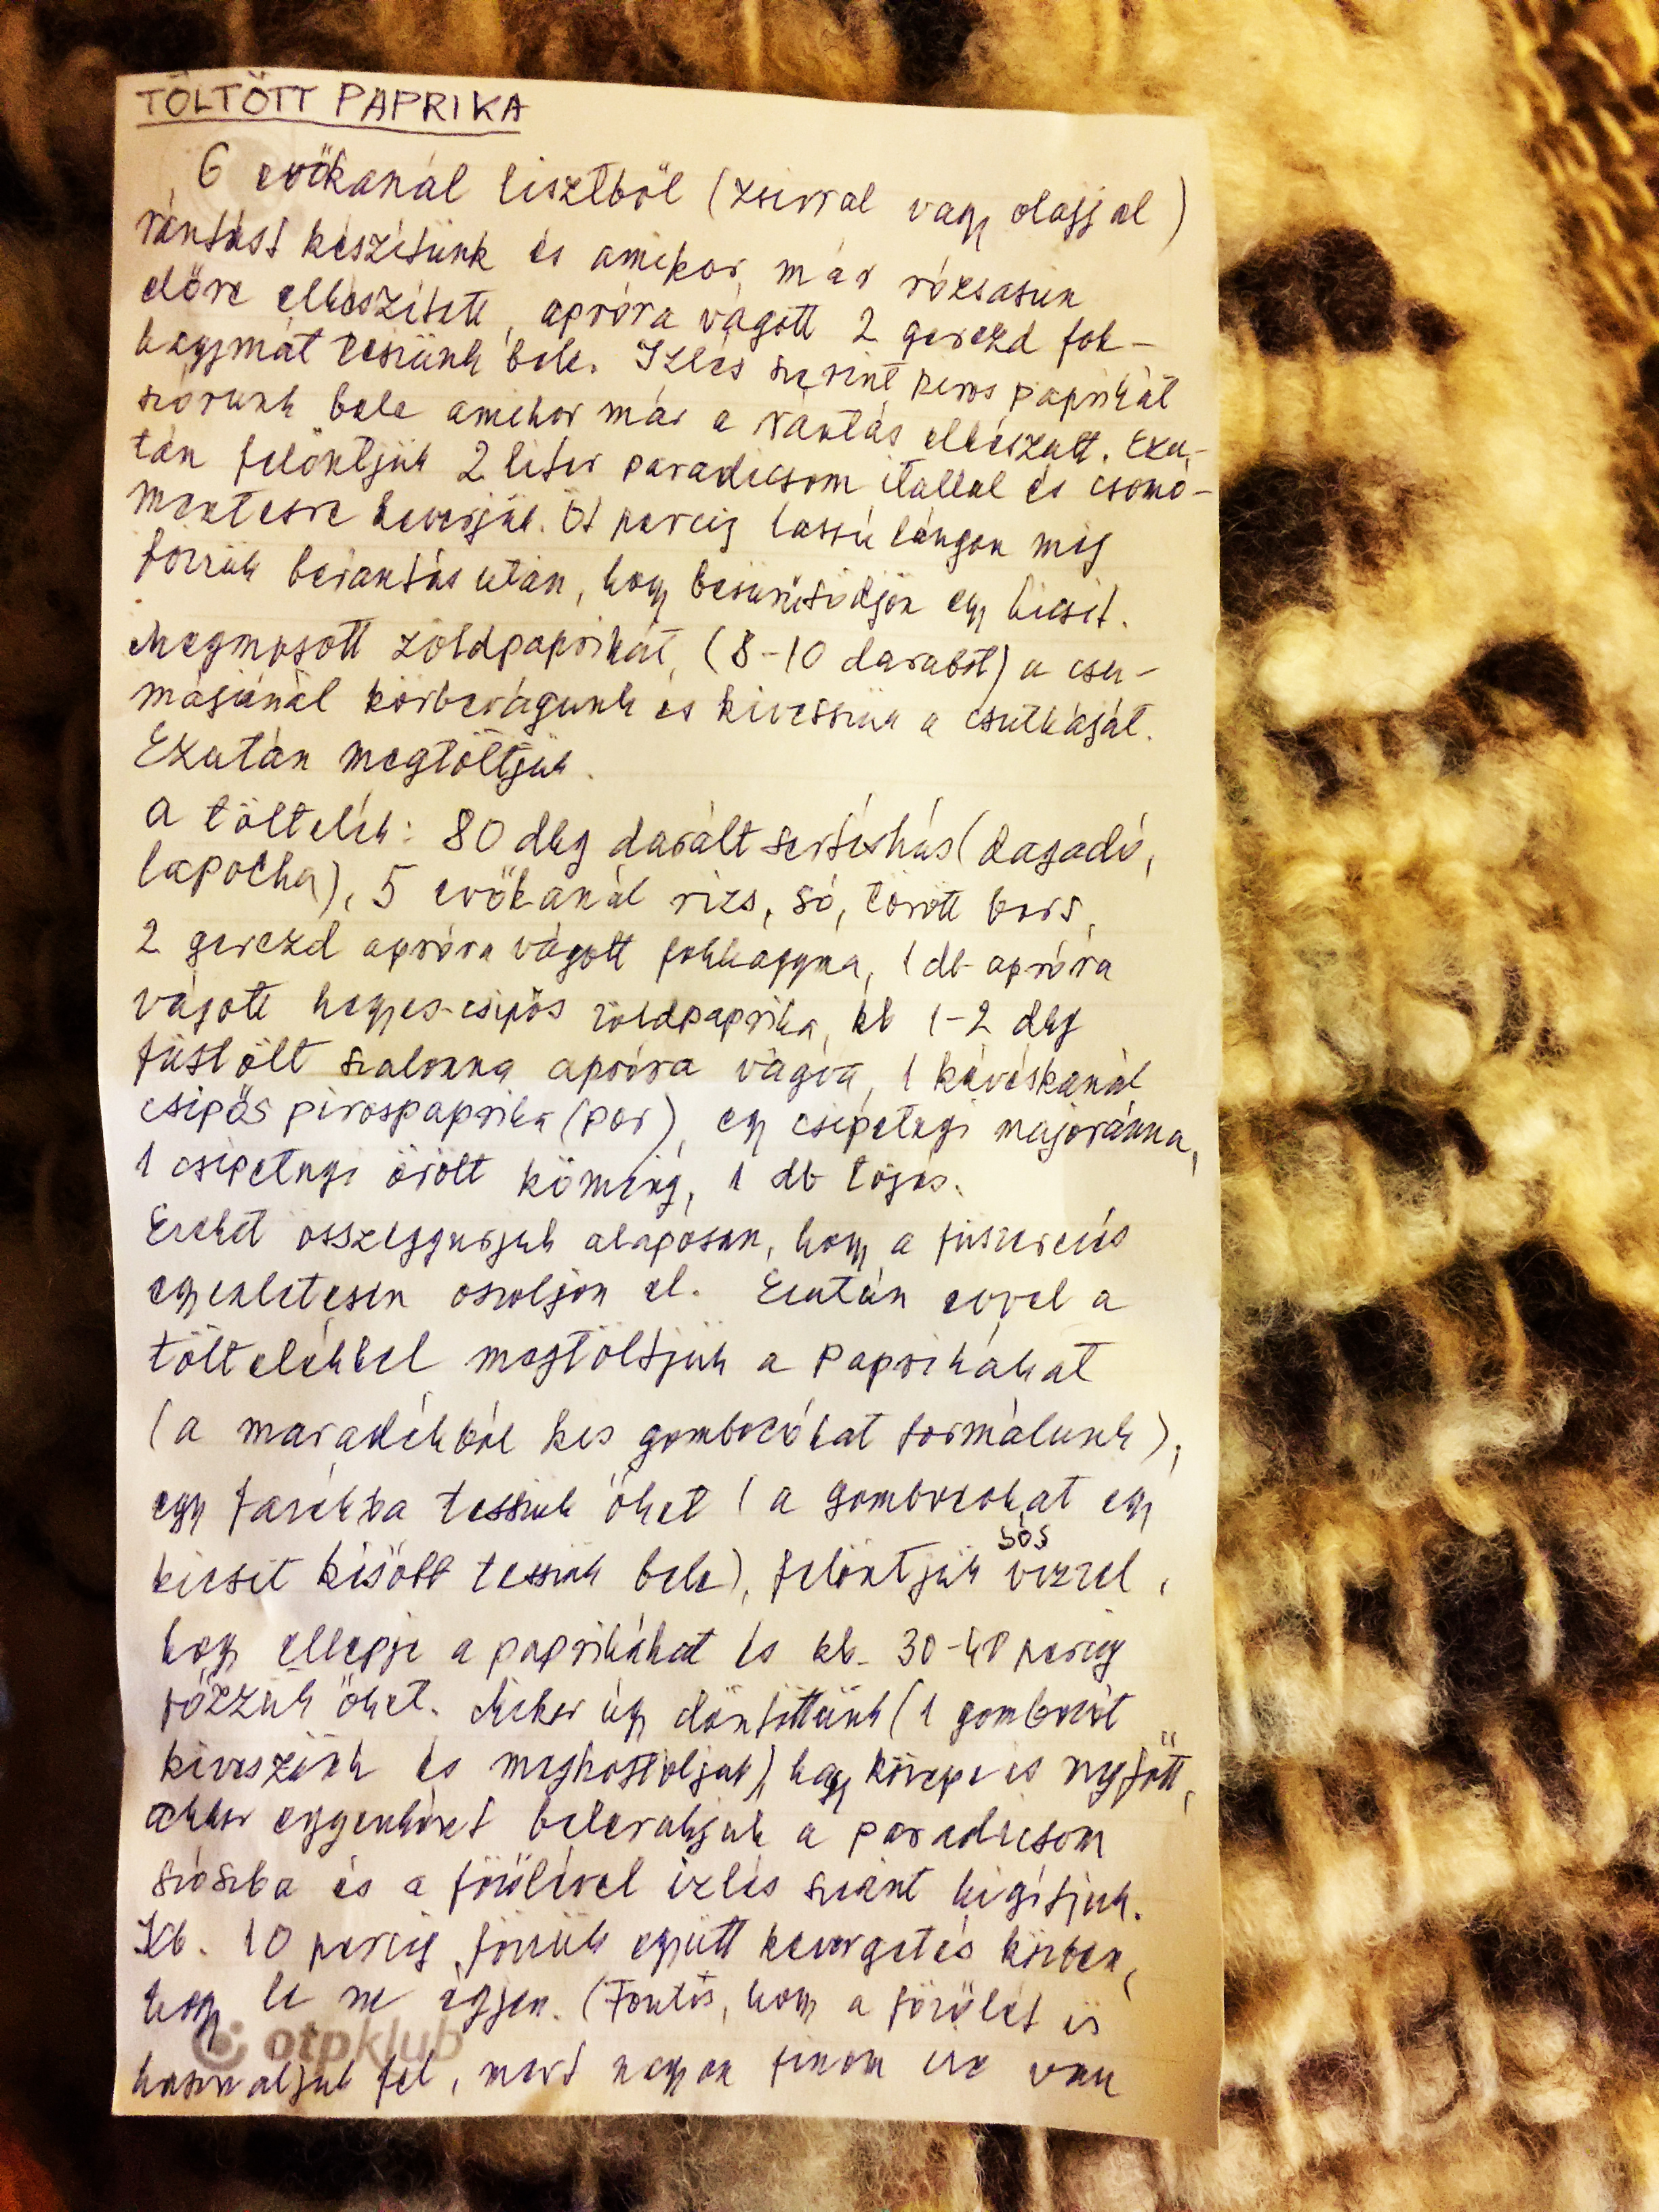 TÖLTÖTT PAPRIKA
6 evőkanál lisztből (zsirral vagy olajjal)
rántást készítünk és amikor már rózsásan
előre elkészített, apróra vágott 2 gerezd fok-
hagymát teszünk bele. Izlés szerint piros paprikát
szórunk bele amikor már a rántás elkészült. Ezu-
tán felöntjük 2 liter paradicsom itallal és csomó-
mentesre keverjük. Öt percig lassú lángon még
főzzük berántás után, hogy besűrűsödjön egy kicsit.
Megmosott zöldpaprikát, (8-10 darabot) a csu-
májánál körbevágunk és kivesszük a csutkáját.
Ezután megtöltjük.
A töltelék: 80 dkg darált sertéshús (dagadó,
lapocka), 5 evőkanál rizs, só, törött bors,
2 gerezd apróra vágott fokhagyma, 1 db apróra
vágott hegyes-csipős zöldpaprika, kb 1-2 dkg
füstölt szalonna apróra vágva, 1 kávéskanál
csipős pirospaprika (por), egy csipetnyi majoránna,
1 csipetnyi őrölt kömény, 1 db tojás.
Ezeket összegyurjuk alaposan, hogy a füszerezés
egyenletesen oszoljon el. Ezután evvel a
töltelékkel megtöltjük a paprikákat
(a maradékból kis gombocókat formálunk),
egy fazékba tesszük őket (a gombocokat egy
kicsit később tesszük bele), felöntjük sós vizzel,
hogy ellepje a paprikákat és kb. 30-40 percig
főzzük őket. Mikor úgy döntöttünk (1 gombocót
kiveszünk és megkostoljuk) hogy közepe is megfőtt,
akkor egyenként belerakjuk a paradicsom
szószba és a főzőlével izlés szerint higítjuk.
Kb. 10 percig főzzük együtt kevergetés közben,
hogy le ne égjen. (Fontos, hogy a főzőlét is
használjuk fel, mert nagyon finom ize van
otpklub